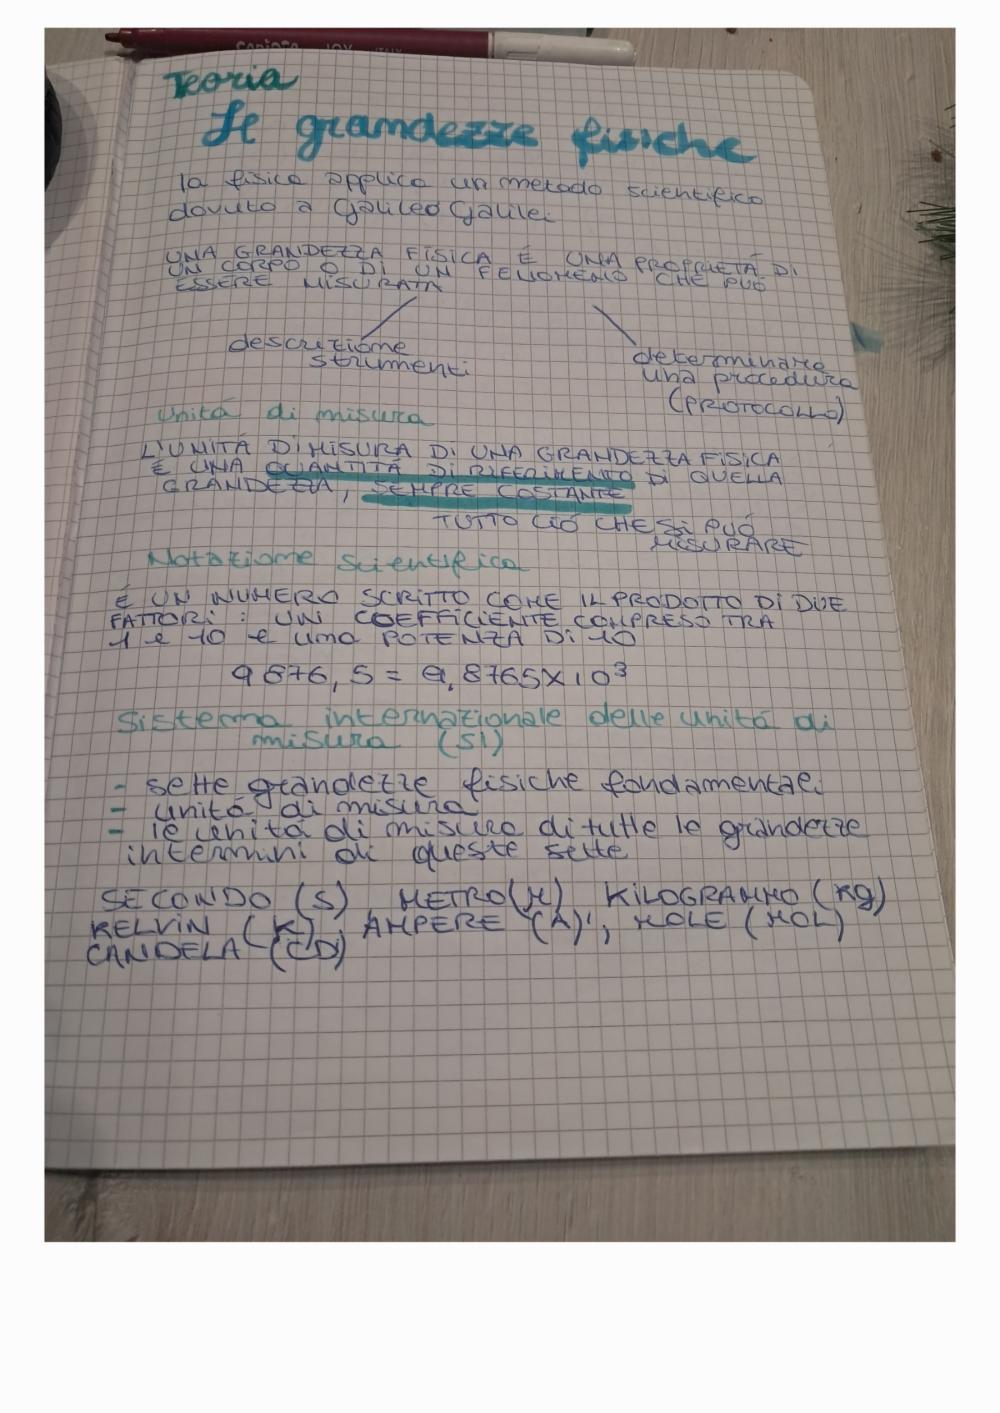 CARIOCA JOY ITALY
Teoria
Le grandezze fisiche
la fisica applica un metodo scientifico
dovuto a Galileo Galilei
UNA GRANDEZZA FISICA È UNA PROPRIETÀ DI
UN CORPO O DI UN FENOMENO CHE PUÒ
ESSERE MISURATA
descrizione
strumenti
determinare
una procedura
(PROTOCOLLO)
Unità di misura
L'UNITÀ DI MISURA DI UNA GRANDEZZA FISICA
È UNA QUANTITÀ DI RIFERIMENTO DI QUELLA
GRANDEZZA, SEMPRE COSTANTE
TUTTO CIÒ CHE SI PUÒ
MISURARE
Notazione scientifica
È UN NUMERO SCRITTO COME IL PRODOTTO DI DUE
FATTORI: UN COEFFICIENTE COMPRESO TRA
1 e 10 e una POTENZA DI 10
9876,5 = 9,8765x10³
Sistema internazionale delle unità di
misura (SI)
- sette grandezze fisiche fondamentali
- unità di misura
- le unità di misura di tutte le grandezze
intermini di queste sette
SECONDO (S) METRO (M) KILOGRAMMO (Kg)
KELVIN (K), AMPERE (A), MOLE (MOL)
CANDELA (CD)